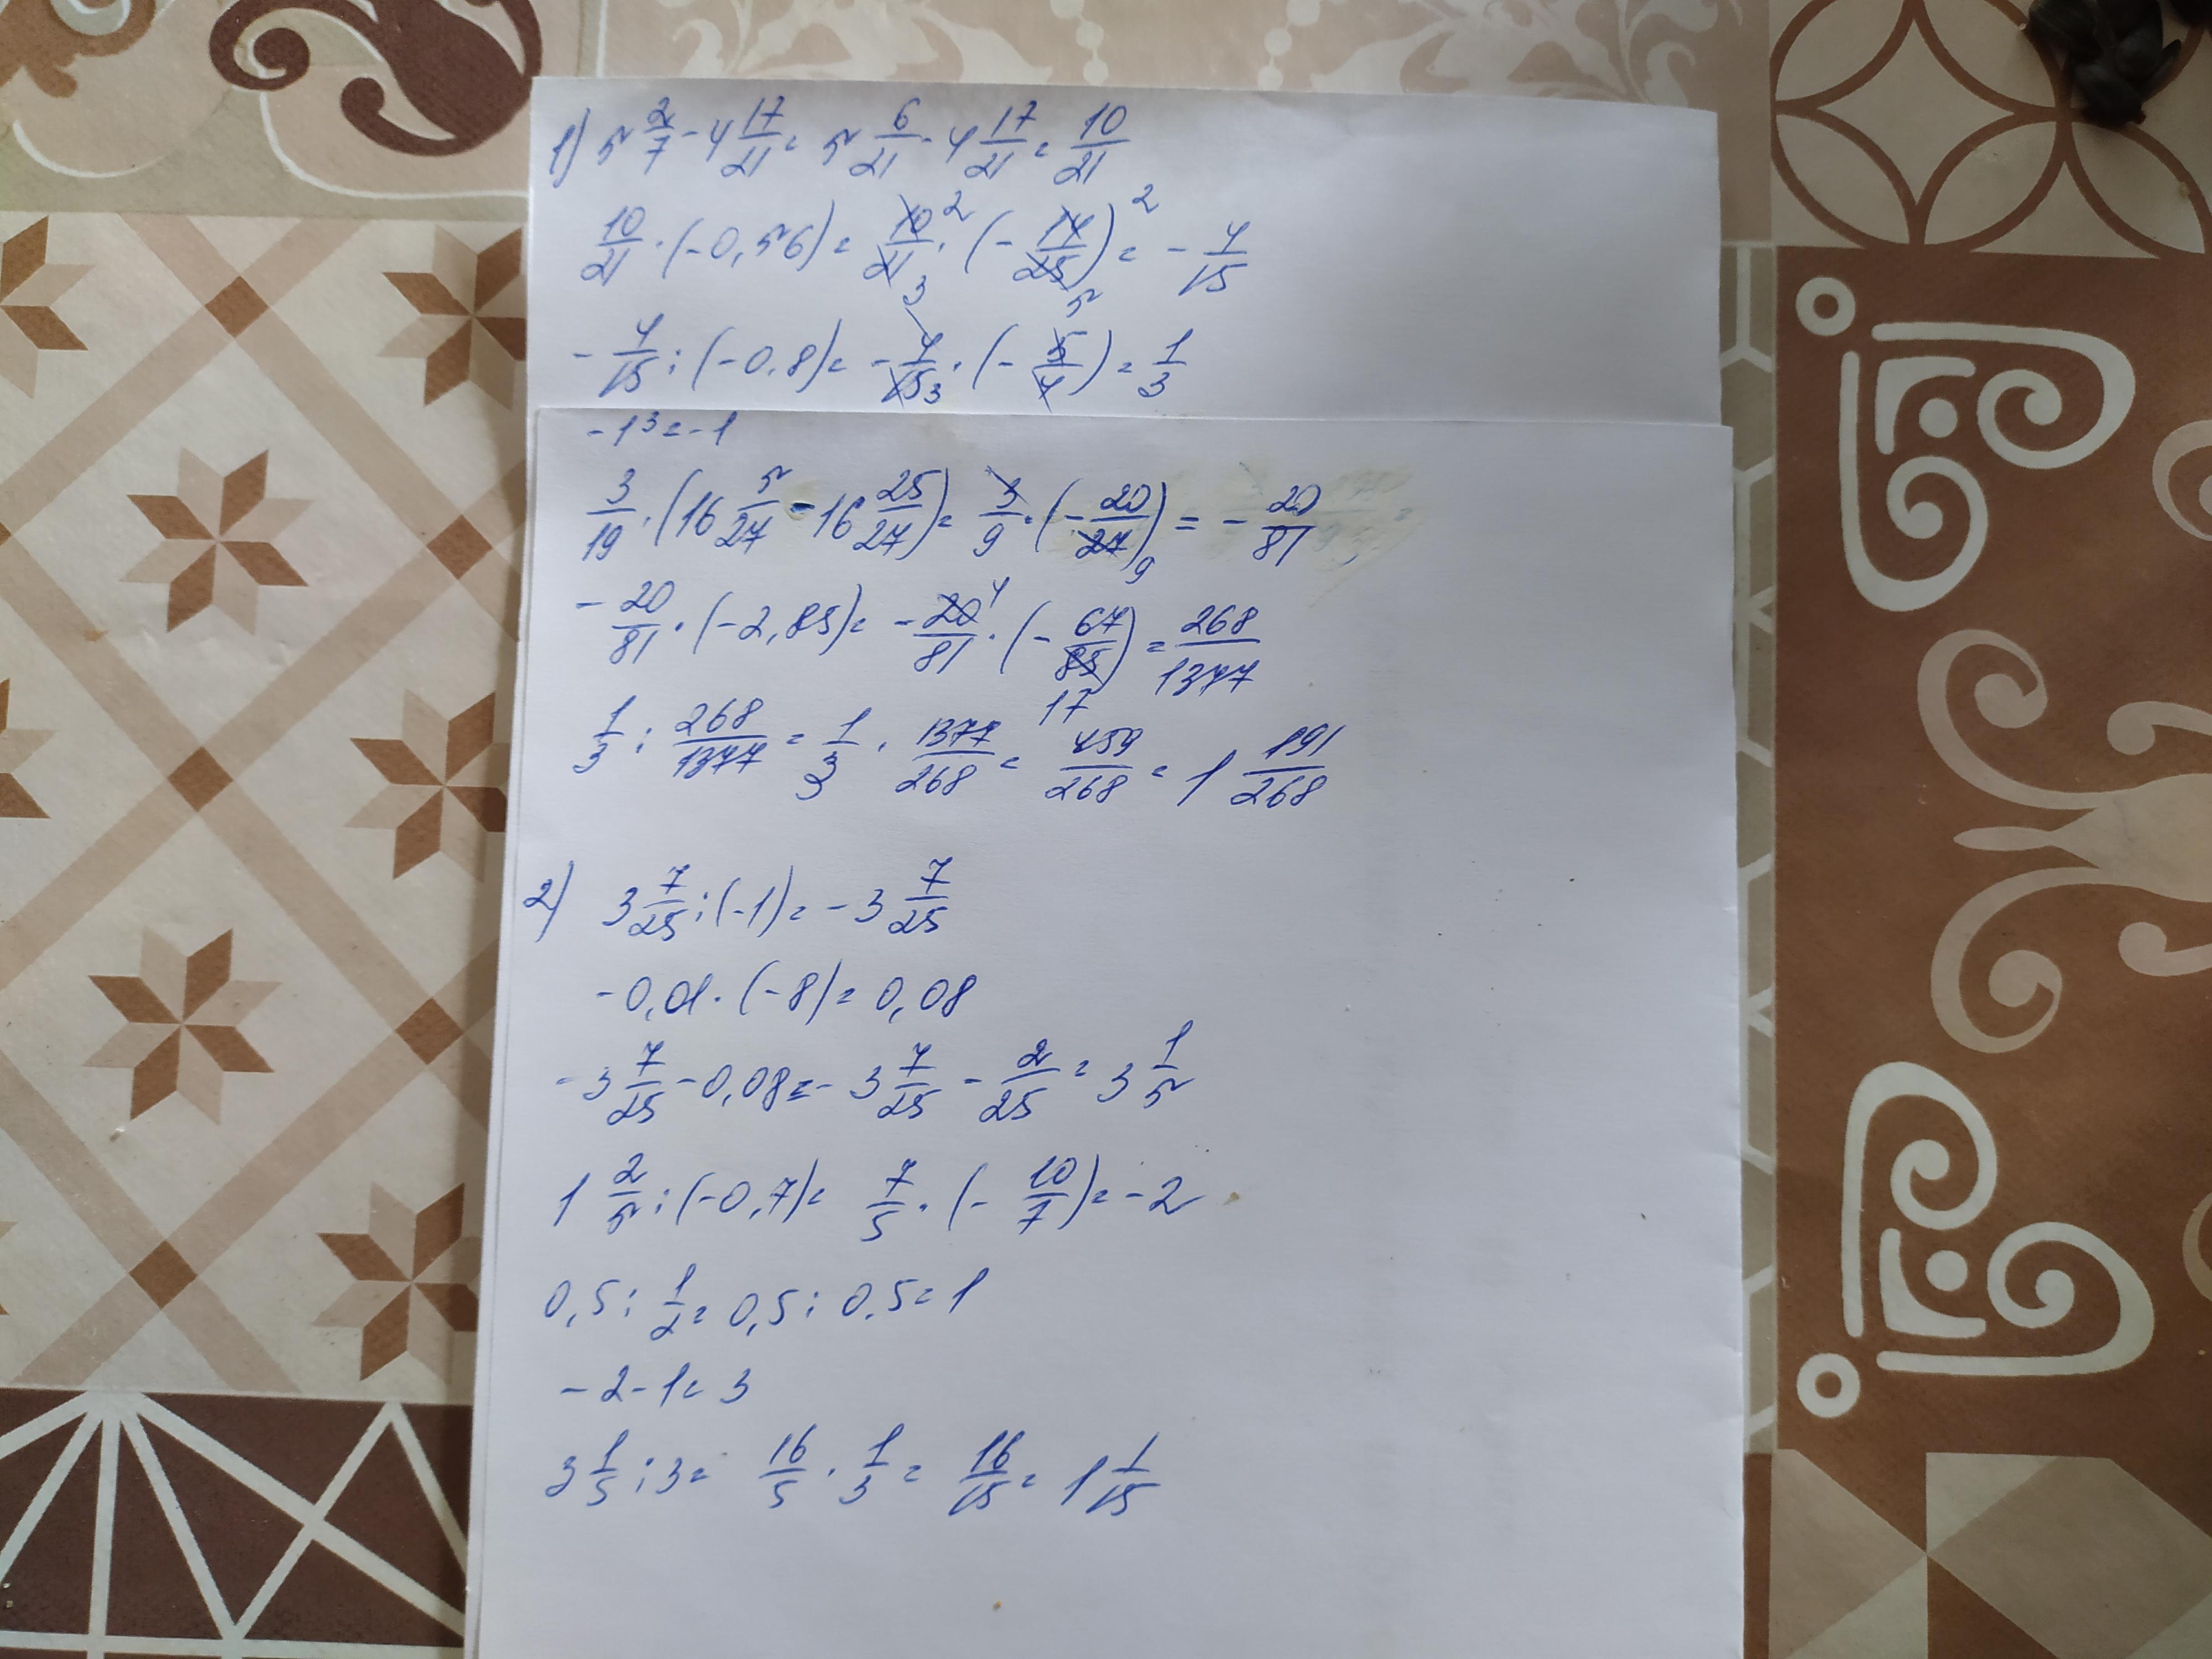 1) 5 2/7 - 4 17/21 = 5 6/21 - 4 17/21 = 10/21
10/21 · (-0,56) = 10/21 3 2 · (- 14/25 5) 2 = - 4/15
- 4/15 : (-0,8) = - 4/15 3 · (- 5/4) = 1/3
-1³ = -1
3/19 · (16 5/27 - 16 25/27) = 3/9 · (- 20/27 9) = - 20/81
- 20/81 · (-2,85) = - 20/81 4 · (- 67/85 17) = 268/1377
1/3 : 268/1377 = 1/3 · 1377/268 = 459/268 = 1 191/268
2) 3 7/25 : (-1) = - 3 7/25
-0,01 · (-8) = 0,08
-3 7/25 - 0,08 = - 3 7/25 - 2/25 = 3 1/5
1 2/5 : (-0,7) = 7/5 · (- 10/7) = -2
0,5 : 1/2 = 0,5 : 0,5 = 1
-2-1 = 3
3 1/5 : 3 = 16/5 · 1/3 = 16/15 = 1 1/15